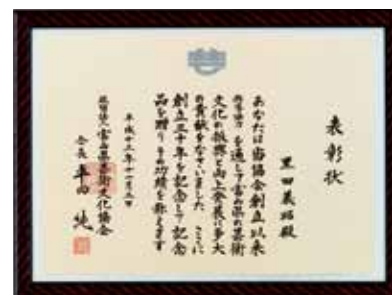 表彰状
黒田義昭殿
あなたは当協会創立以来
を通して富山県の芸術
文化の振興と向上発展に多大
の貢献をなさいました ここに
創立三十年を記念して記念
品を贈りその功績を称えます
平成十三年十一月三日
富山県芸術文化協会
会長 平田純